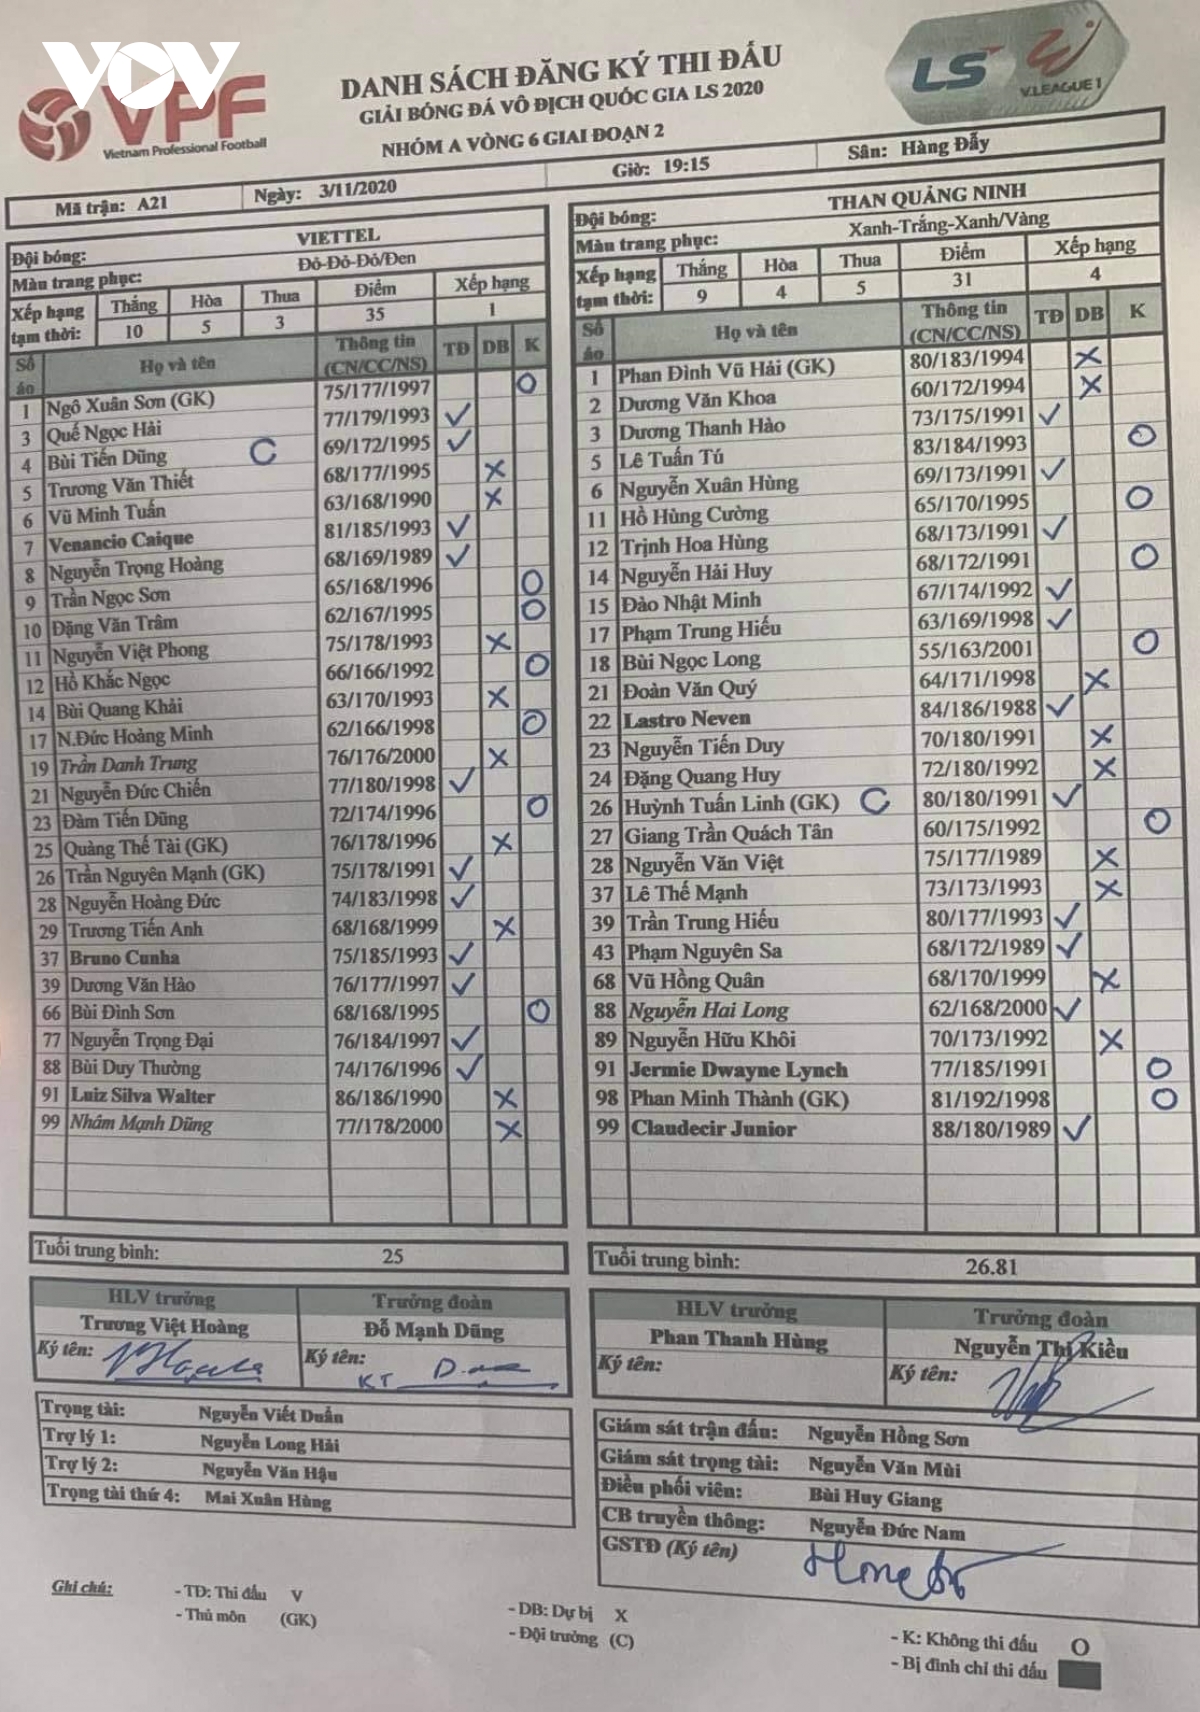 VOV
VPF
Vietnam Professional Football
DANH SÁCH ĐĂNG KÝ THI ĐẤU
GIẢI BÓNG ĐÁ VÔ ĐỊCH QUỐC GIA LS 2020
NHÓM A VÒNG 6 GIAI ĐOẠN 2
LS
V.LEAGUE 1
Mã trận: A21 Ngày: 3/11/2020 Giờ: 19:15 Sân: Hàng Đẫy
Đội bóng: VIETTEL
Màu trang phục: Đỏ-Đỏ-Đỏ/Đen
Xếp hạng tạm thời: Thắng Hòa Thua Điểm Xếp hạng
10 5 3 35 1
Số áo Họ và tên Thông tin (CN/CC/NS) TĐ DB K
1 Ngô Xuân Sơn (GK) 75/177/1997 O
3 Quế Ngọc Hải 77/179/1993 ✓
4 Bùi Tiến Dũng C 69/172/1995 ✓
5 Trương Văn Thiết 68/177/1995 X
6 Vũ Minh Tuấn 63/168/1990 X
7 Venancio Caique 81/185/1993 ✓
8 Nguyễn Trọng Hoàng 68/169/1989 ✓
9 Trần Ngọc Sơn 65/168/1996 O
10 Đặng Văn Trâm 62/167/1995 O
11 Nguyễn Việt Phong 75/178/1993 X
12 Hồ Khắc Ngọc 66/166/1992 O
14 Bùi Quang Khải 63/170/1993 X
17 N.Đức Hoàng Minh 62/166/1998 O
19 Trần Danh Trung 76/176/2000 X
21 Nguyễn Đức Chiến 77/180/1998 ✓
23 Đàm Tiến Dũng 72/174/1996 O
25 Quàng Thế Tài (GK) 76/178/1996 X
26 Trần Nguyên Mạnh (GK) 75/178/1991 ✓
28 Nguyễn Hoàng Đức 74/183/1998 ✓
29 Trương Tiến Anh 68/168/1999 X
37 Bruno Cunha 75/185/1993 ✓
39 Dương Văn Hào 76/177/1997 ✓
66 Bùi Đình Sơn 68/168/1995 O
77 Nguyễn Trọng Đại 76/184/1997 ✓
88 Bùi Duy Thường 74/176/1996 ✓
91 Luiz Silva Walter 86/186/1990 X
99 Nhâm Mạnh Dũng 77/178/2000 X
Tuổi trung bình: 25
HLV trưởng Trưởng đoàn
Trương Việt Hoàng Đỗ Mạnh Dũng
Ký tên: Ký tên:
KT
Trọng tài: Nguyễn Viết Duẩn
Trợ lý 1: Nguyễn Long Hải
Trợ lý 2: Nguyễn Văn Hậu
Trọng tài thứ 4: Mai Xuân Hùng
Đội bóng: THAN QUẢNG NINH
Màu trang phục: Xanh-Trắng-Xanh/Vàng
Xếp hạng tạm thời: Thắng Hòa Thua Điểm Xếp hạng
9 4 5 31 4
Số áo Họ và tên Thông tin (CN/CC/NS) TĐ DB K
1 Phan Đình Vũ Hải (GK) 80/183/1994 X
2 Dương Văn Khoa 60/172/1994 X
3 Dương Thanh Hào 73/175/1991 ✓
5 Lê Tuấn Tú 83/184/1993 O
6 Nguyễn Xuân Hùng 69/173/1991 ✓
11 Hồ Hùng Cường 65/170/1995 O
12 Trịnh Hoa Hùng 68/173/1991 ✓
14 Nguyễn Hải Huy 68/172/1991 O
15 Đào Nhật Minh 67/174/1992 ✓
17 Phạm Trung Hiếu 63/169/1998 ✓
18 Bùi Ngọc Long 55/163/2001 O
21 Đoàn Văn Quý 64/171/1998 X
22 Lastro Neven 84/186/1988 ✓
23 Nguyễn Tiến Duy 70/180/1991 X
24 Đặng Quang Huy 72/180/1992 X
26 Huỳnh Tuấn Linh (GK) C 80/180/1991 ✓
27 Giang Trần Quách Tân 60/175/1992 O
28 Nguyễn Văn Việt 75/177/1989 X
37 Lê Thế Mạnh 73/173/1993 X
39 Trần Trung Hiếu 80/177/1993 ✓
43 Phạm Nguyên Sa 68/172/1989 ✓
68 Vũ Hồng Quân 68/170/1999 X
88 Nguyễn Hai Long 62/168/2000 ✓
89 Nguyễn Hữu Khôi 70/173/1992 X
91 Jermie Dwayne Lynch 77/185/1991 O
98 Phan Minh Thành (GK) 81/192/1998 O
99 Claudecir Junior 88/180/1989 ✓
Tuổi trung bình: 26.81
HLV trưởng Trưởng đoàn
Phan Thanh Hùng Nguyễn Thị Kiều
Ký tên: Ký tên:
Giám sát trận đấu: Nguyễn Hồng Sơn
Giám sát trọng tài: Nguyễn Văn Mùi
Điều phối viên: Bùi Huy Giang
CB truyền thông: Nguyễn Đức Nam
GSTĐ (Ký tên)
Ghi chú: - TD: Thi đấu V
- Thủ môn (GK)
- DB: Dự bị X
- Đội trưởng (C)
- K: Không thi đấu O
- Bị đình chỉ thi đấu